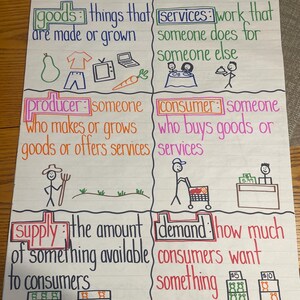 goods: things that
are made or grown
services: work that
someone does for
someone else
producer: someone
who makes or grows
goods or offers services
consumer: someone
who buys goods or
services
supply: the amount
of something available
to consumers
demand: how much
consumers want
something